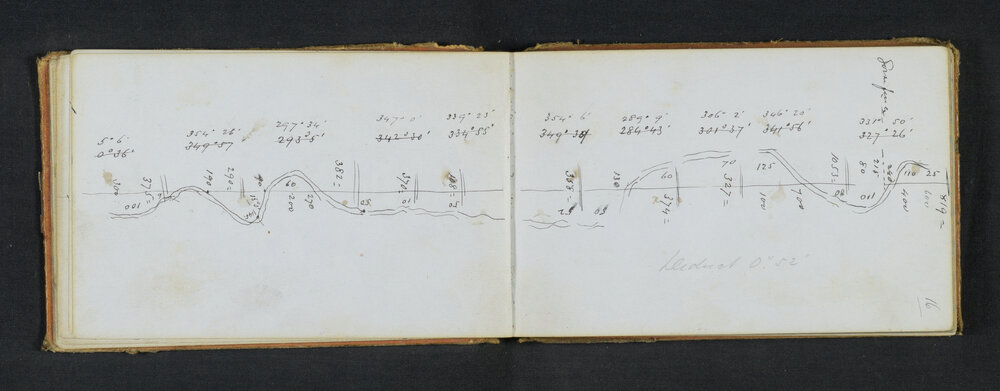 5° 6'
0° 36'
354° 26'
349° 57'
297° 34'
293° 5'
347° 0'
342° 30'
339° 25'
334° 55'
354° 6'
349° 37'
289° 9'
284° 43'
306° 2'
301° 37'
346° 20'
341° 56'
331° 50'
327° 26'
300
100
375 =
190
290 =
60
200
670
387 =
570
10
188 =
20
388 =
52
50
130
60
374 =
70
327 =
125
100
700
1053 =
80
110
215
240
400
110
25
600
819 =
Deduct 0° 52'
16